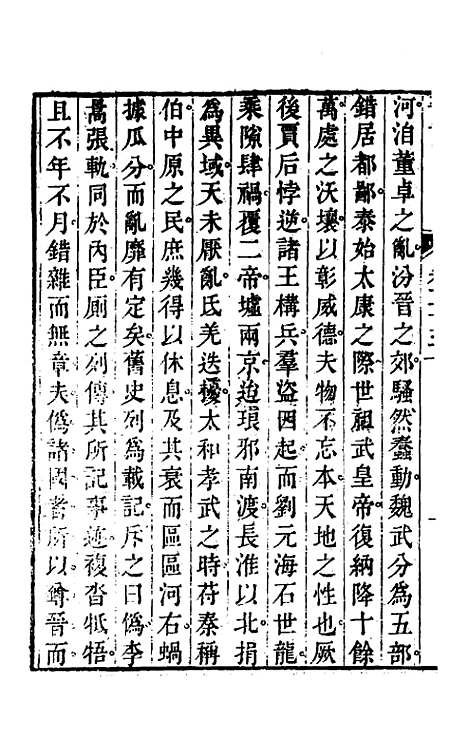 河泊董卓之亂汾晉之郊騷然蠢動魏武分為五部
錯居都鄙泰始太康之際世祖武皇帝復納降十餘
萬處之沃壤以彰威德夫物不忘本天地之性也厥
後賈后悖逆諸王構兵羣盜四起而劉元海石世龍
乘隙肆禍覆二帝墟兩京迨琅邪南渡長淮以北捐
為異域天未厭亂氐羌迭擾太和孝武之時苻秦稱
伯中原之民庶幾得以休息及其衰而區區河右蝸
據瓜分而亂靡有定矣舊史列為載記斥之曰偽李
暠張軌同於內臣廁之列傳其所記事迹複沓牴牾
且不年不月錯雜而無章夫偽諸國者所以尊晉而